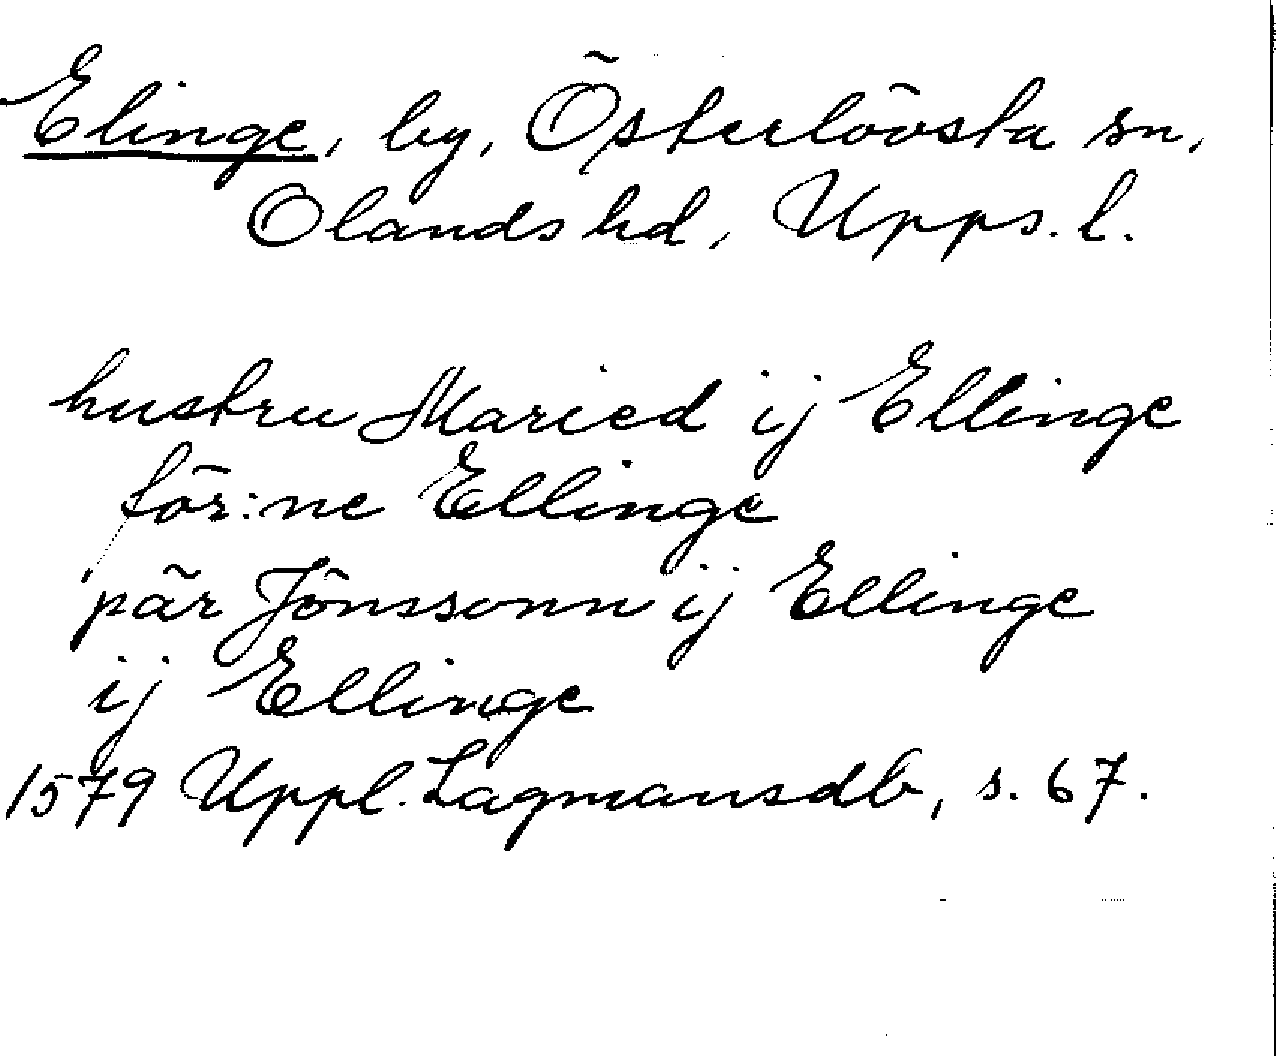 Elinge, by, Österlövsta sn,
Olands hd, Upps. l.
hustru Maried ij Ellinge
för:ne Ellinge
pär Jönssonn ij Ellinge
ij Ellinge
1579 Uppl. Lagmansdb, s. 67.